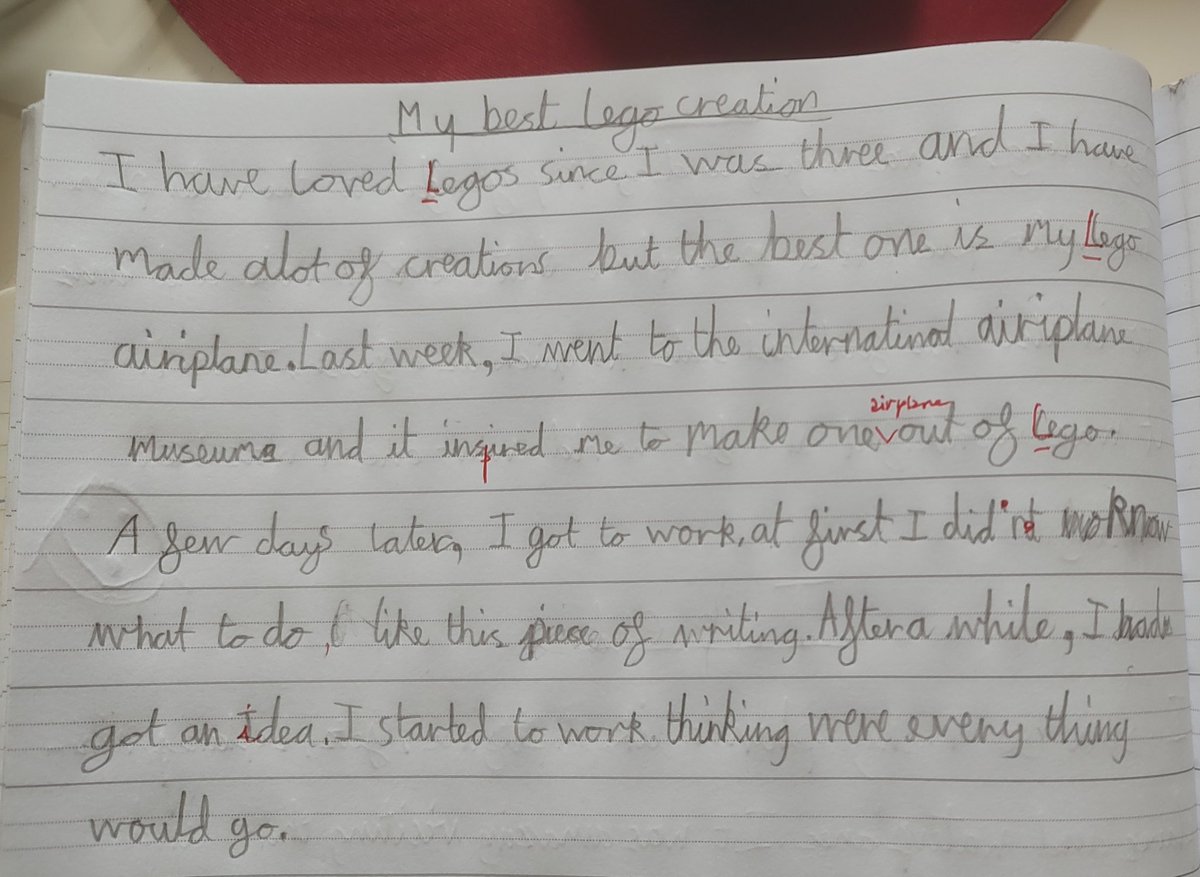 My best lego creation
I have loved Legos since I was three and I have
made alot of creations but the best one is my Lego
airiplane. Last week, I went to the internatinal airiplane
museum and it inspired me to make one airplane out of Lego.
A few days later, I got to work, at first I did'nt know
what to do, like this piese of writing. After a while, I had
got an idea. I started to work thinking were every thing
would go.